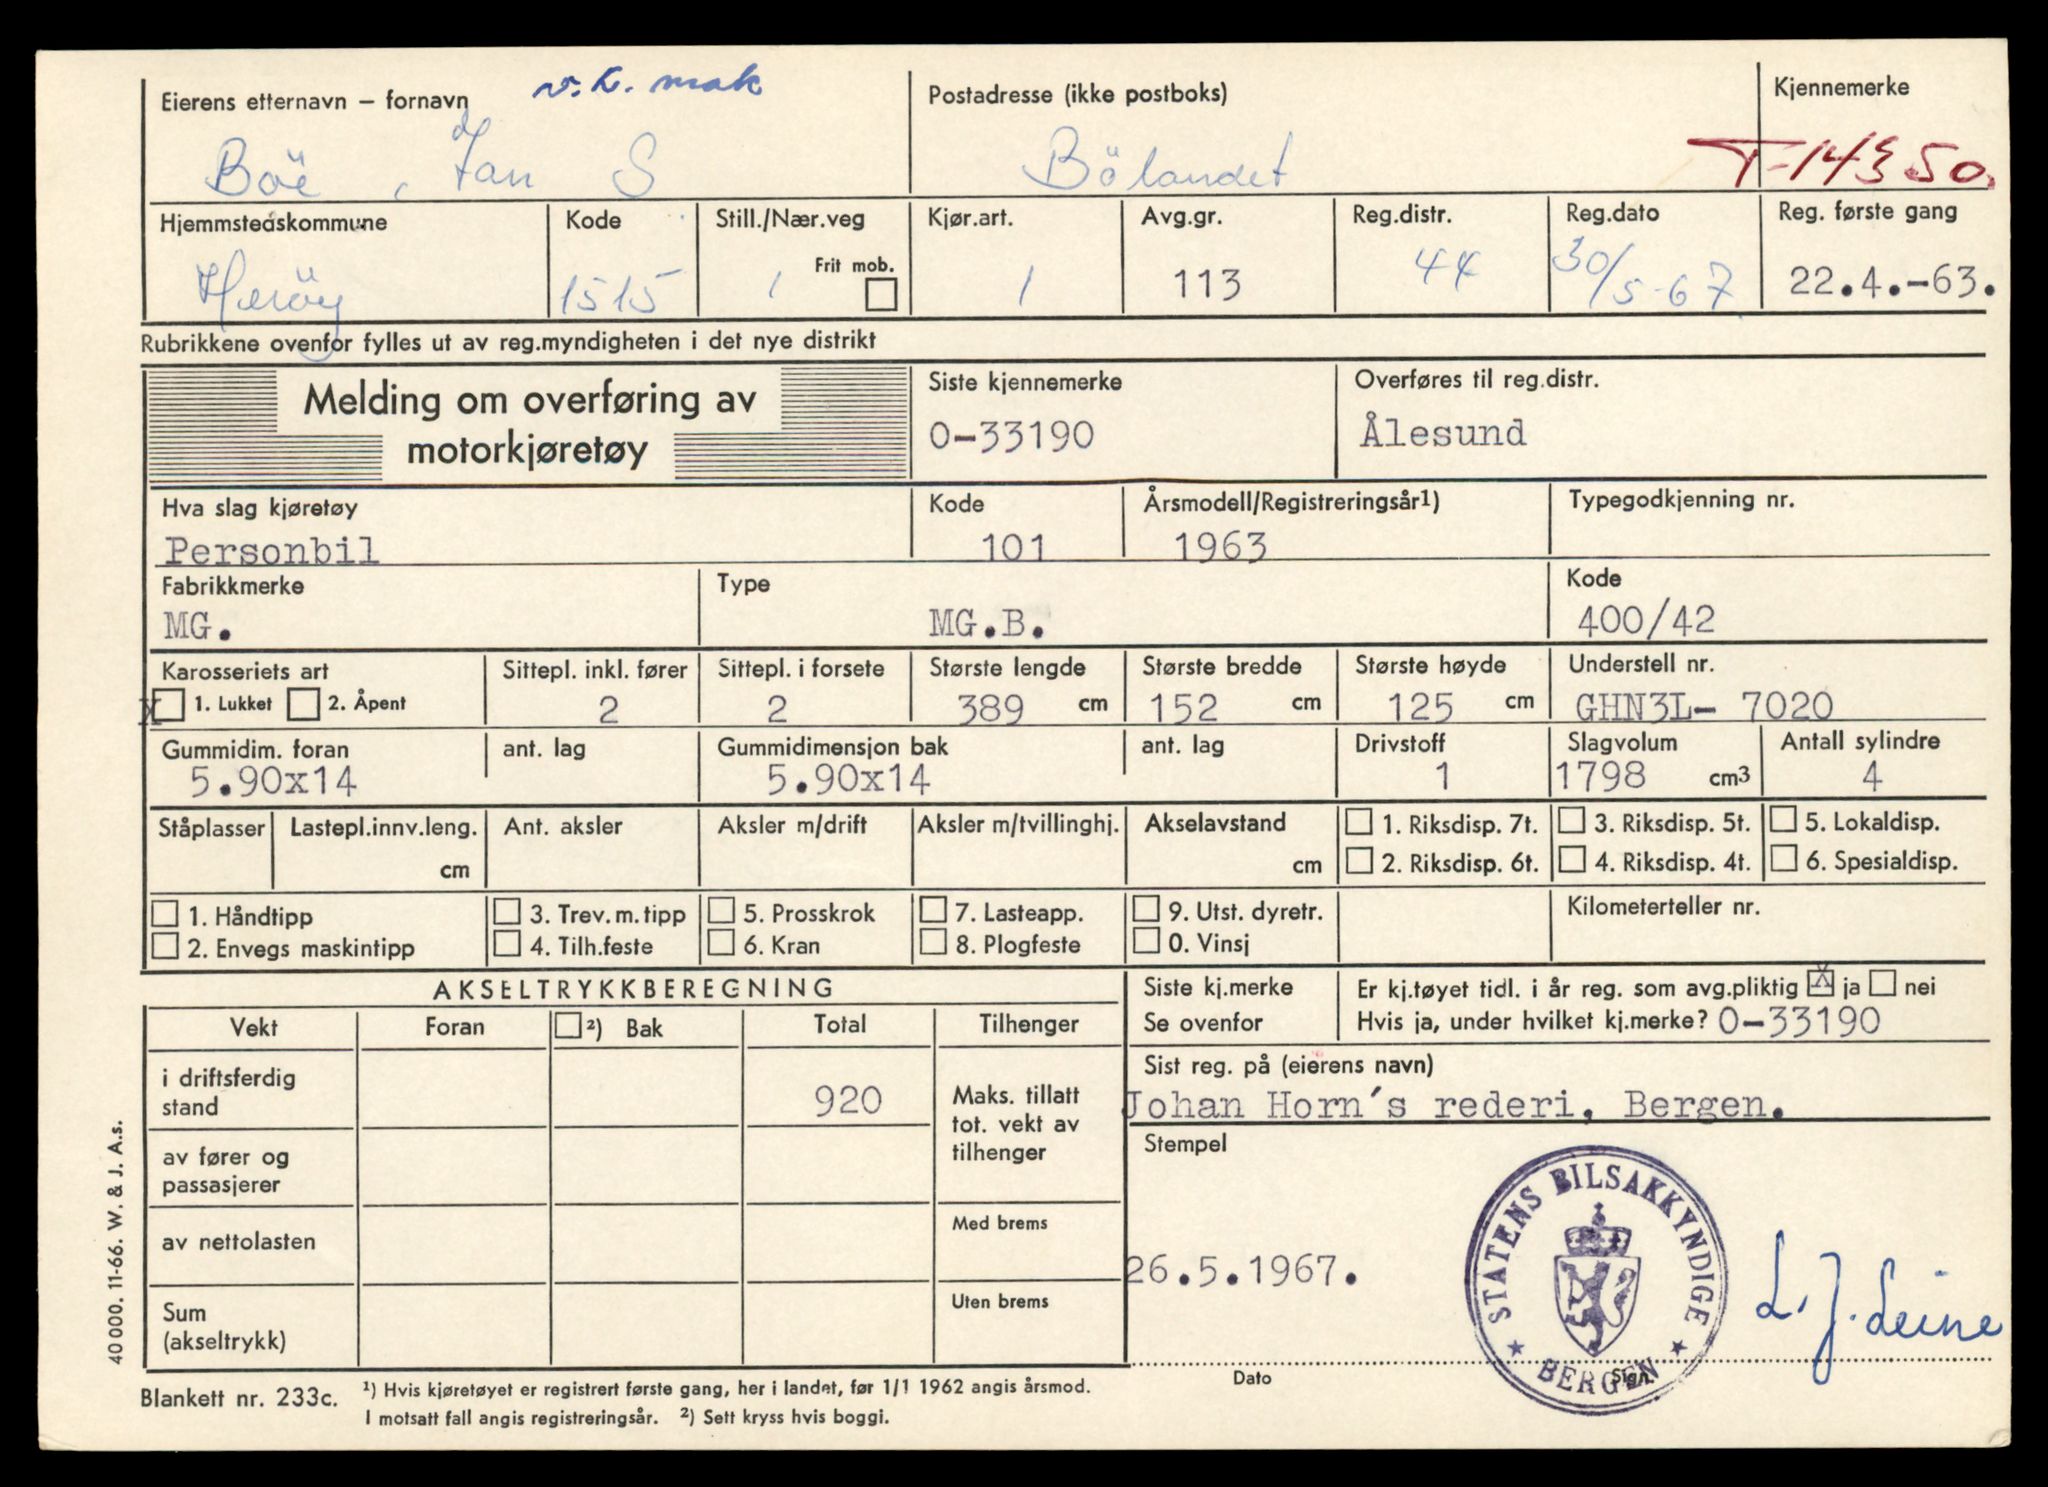 Eierens etternavn – fornavn
Postadresse (ikke postboks)
Kjennemerke
Böe, Jan S
Bölandet
T-14350.
Hjemmstedskommune Kode Still./Nær.veg Kjør.art. Avg.gr. Reg.distr. Reg.dato Reg. første gang
Frit mob.
Heröy 1515 1 1 113 44 30/5-67 22.4.-63.
Rubrikkene ovenfor fylles ut av reg.myndigheten i det nye distrikt
Melding om overføring av
motorkjøretøy
Siste kjennemerke Overføres til reg.distr.
O-33190 Ålesund
Hva slag kjøretøy Kode Årsmodell/Registreringsår1) Typegodkjenning nr.
Personbil 101 1963
Fabrikkmerke Type Kode
MG. MG.B. 400/42
Karosseriets art Sittepl. inkl. fører Sittepl. i forsete Største lengde Største bredde Største høyde Understell nr.
X 1. Lukket 2. Åpent 2 2 389 cm 152 cm 125 cm GHN3L- 7020
Gummidim. foran ant. lag Gummidimensjon bak ant. lag Drivstoff Slagvolum Antall sylindre
5.90x14 5.90x14 1 1798 cm3 4
Ståplasser Lastepl.innv.leng. Ant. aksler Aksler m/drift Aksler m/tvillinghj. Akselavstand 1. Riksdisp. 7t. 3. Riksdisp. 5t. 5. Lokaldisp.
cm cm 2. Riksdisp. 6t. 4. Riksdisp. 4t. 6. Spesialdisp.
1. Håndtipp 3. Trev. m. tipp 5. Prosskrok 7. Lasteapp. 9. Utst. dyretr. Kilometerteller nr.
2. Envegs maskintipp 4. Tilh.feste 6. Kran 8. Plogfeste 0. Vinsj
AKSELTRYKKBEREGNING
Siste kj.merke Er kj.tøyet tidl. i år reg. som avg.pliktig X ja nei
Se ovenfor Hvis ja, under hvilket kj.merke? O-33190
Vekt Foran 2) Bak Total Tilhenger
Sist reg. på (eierens navn)
Johan Horn's rederi, Bergen.
i driftsferdig
stand 920
Maks. tillatt
tot. vekt av
tilhenger
av fører og
passasjerer
Stempel
av nettolasten
Med brems
26.5.1967.
STATENS BILSAKKYNDIGE
BERGEN
L. J. Leine
Sum
(akseltrykk)
Uten brems
Dato Sign.
40 000. 11-66. W. & J. A.s.
Blankett nr. 233c.
1) Hvis kjøretøyet er registrert første gang, her i landet, før 1/1 1962 angis årsmod.
I motsatt fall angis registreringsår. 2) Sett kryss hvis boggi.